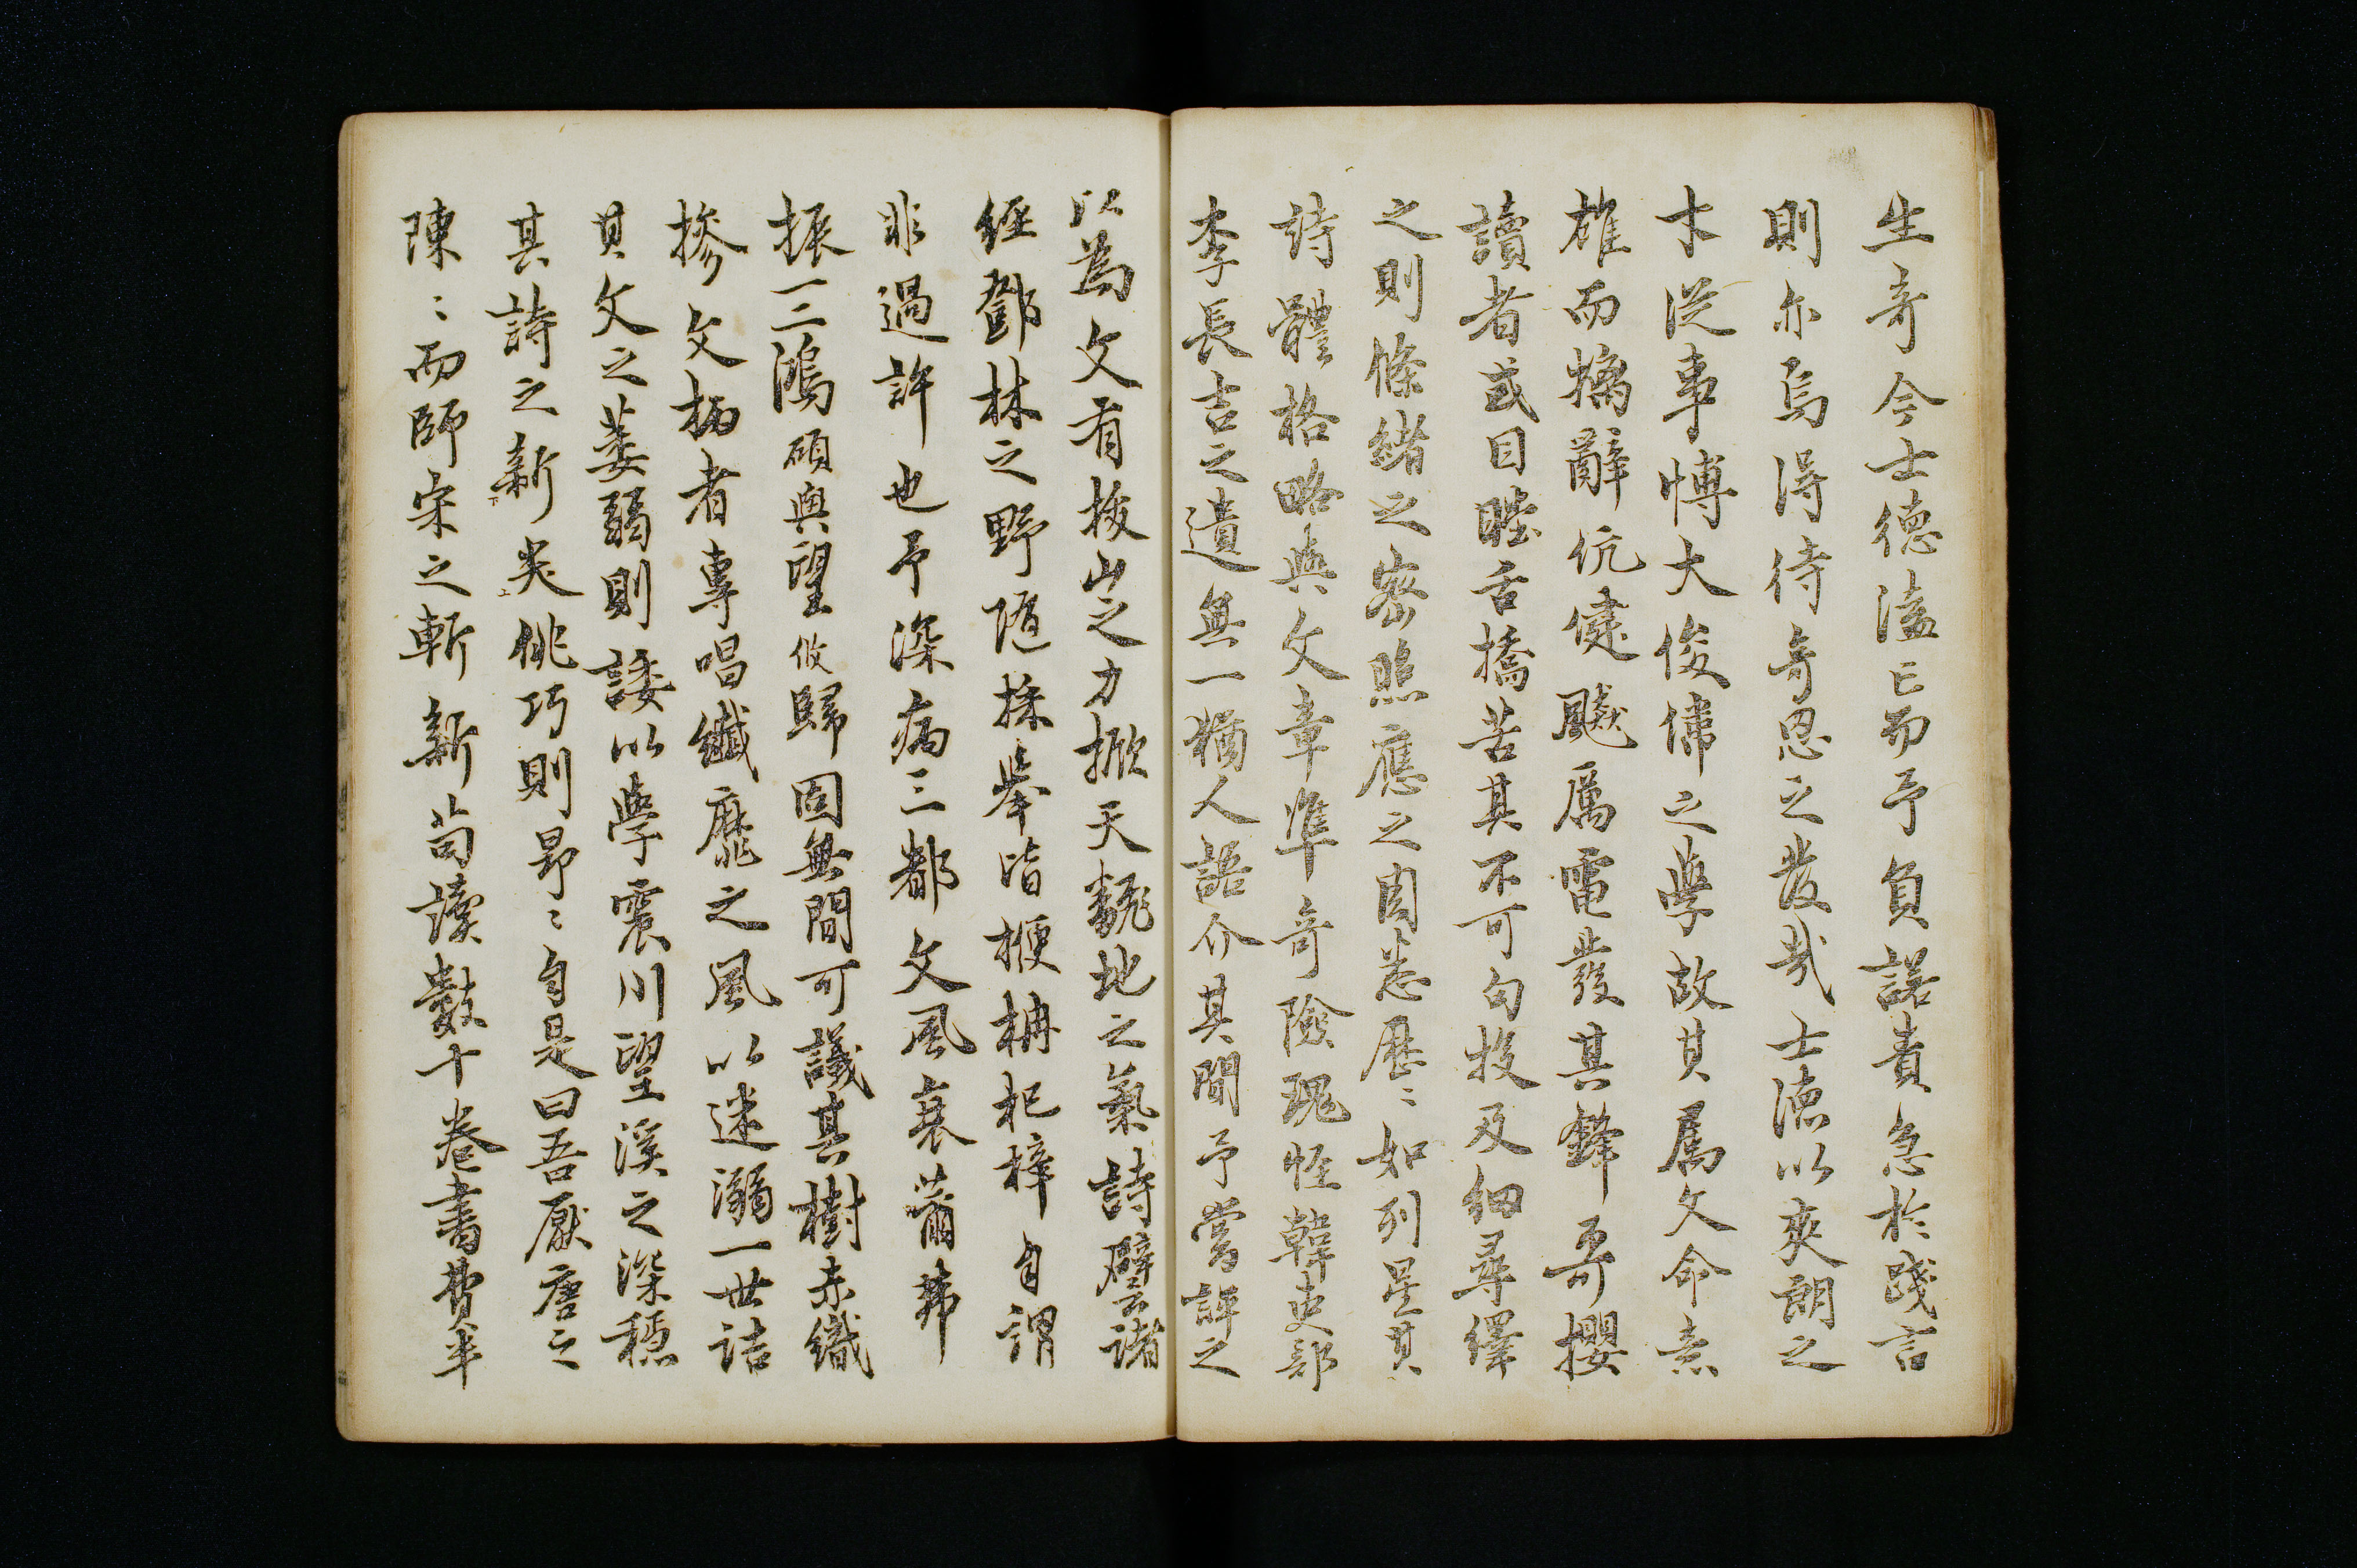 生奇今士德溘亡而予負諾責急於踐言
則亦烏得待奇思之發哉士德以爽朗之
才從事博大俊偉之學故其属文命意
雄而摛辭伉健飈厲電發其鋒不可攖
讀者或目眵舌撟苦其不可句投及細尋繹
之則條緒之密照應之周悉歷〻如列星其
詩體格略與文章準奇險瑰怪韓吏部
李長吉之遺無一猶人語介其間予嘗評之
以為文有拔山之力掀天翻地之氣詩譬諸
經鄧林之野隨採舉皆楩枏杞梓自謂
非過許也予深病三都文風衰薾弗
振一二鴻碩與望攸歸固無間可議其樹赤幟
摻文柄者專唱纖靡之風以迷溺一世詰
其文之萎弱則諉以學震川望溪之深穩
其詩之新尖佻巧則昂〻自是曰吾厭唐之
陳〻而師宋之斬新苟讀數十卷書費半